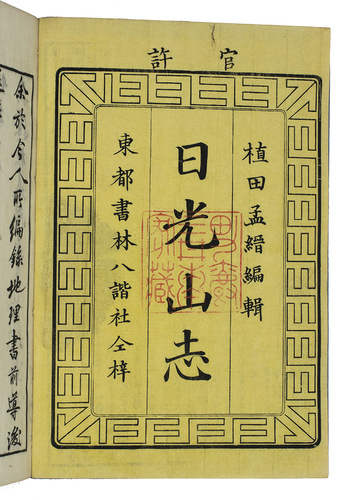 官許
植田孟縉編輯
日光山志
東都書林八諧社仝梓
余於今人所編錄地理書前導後